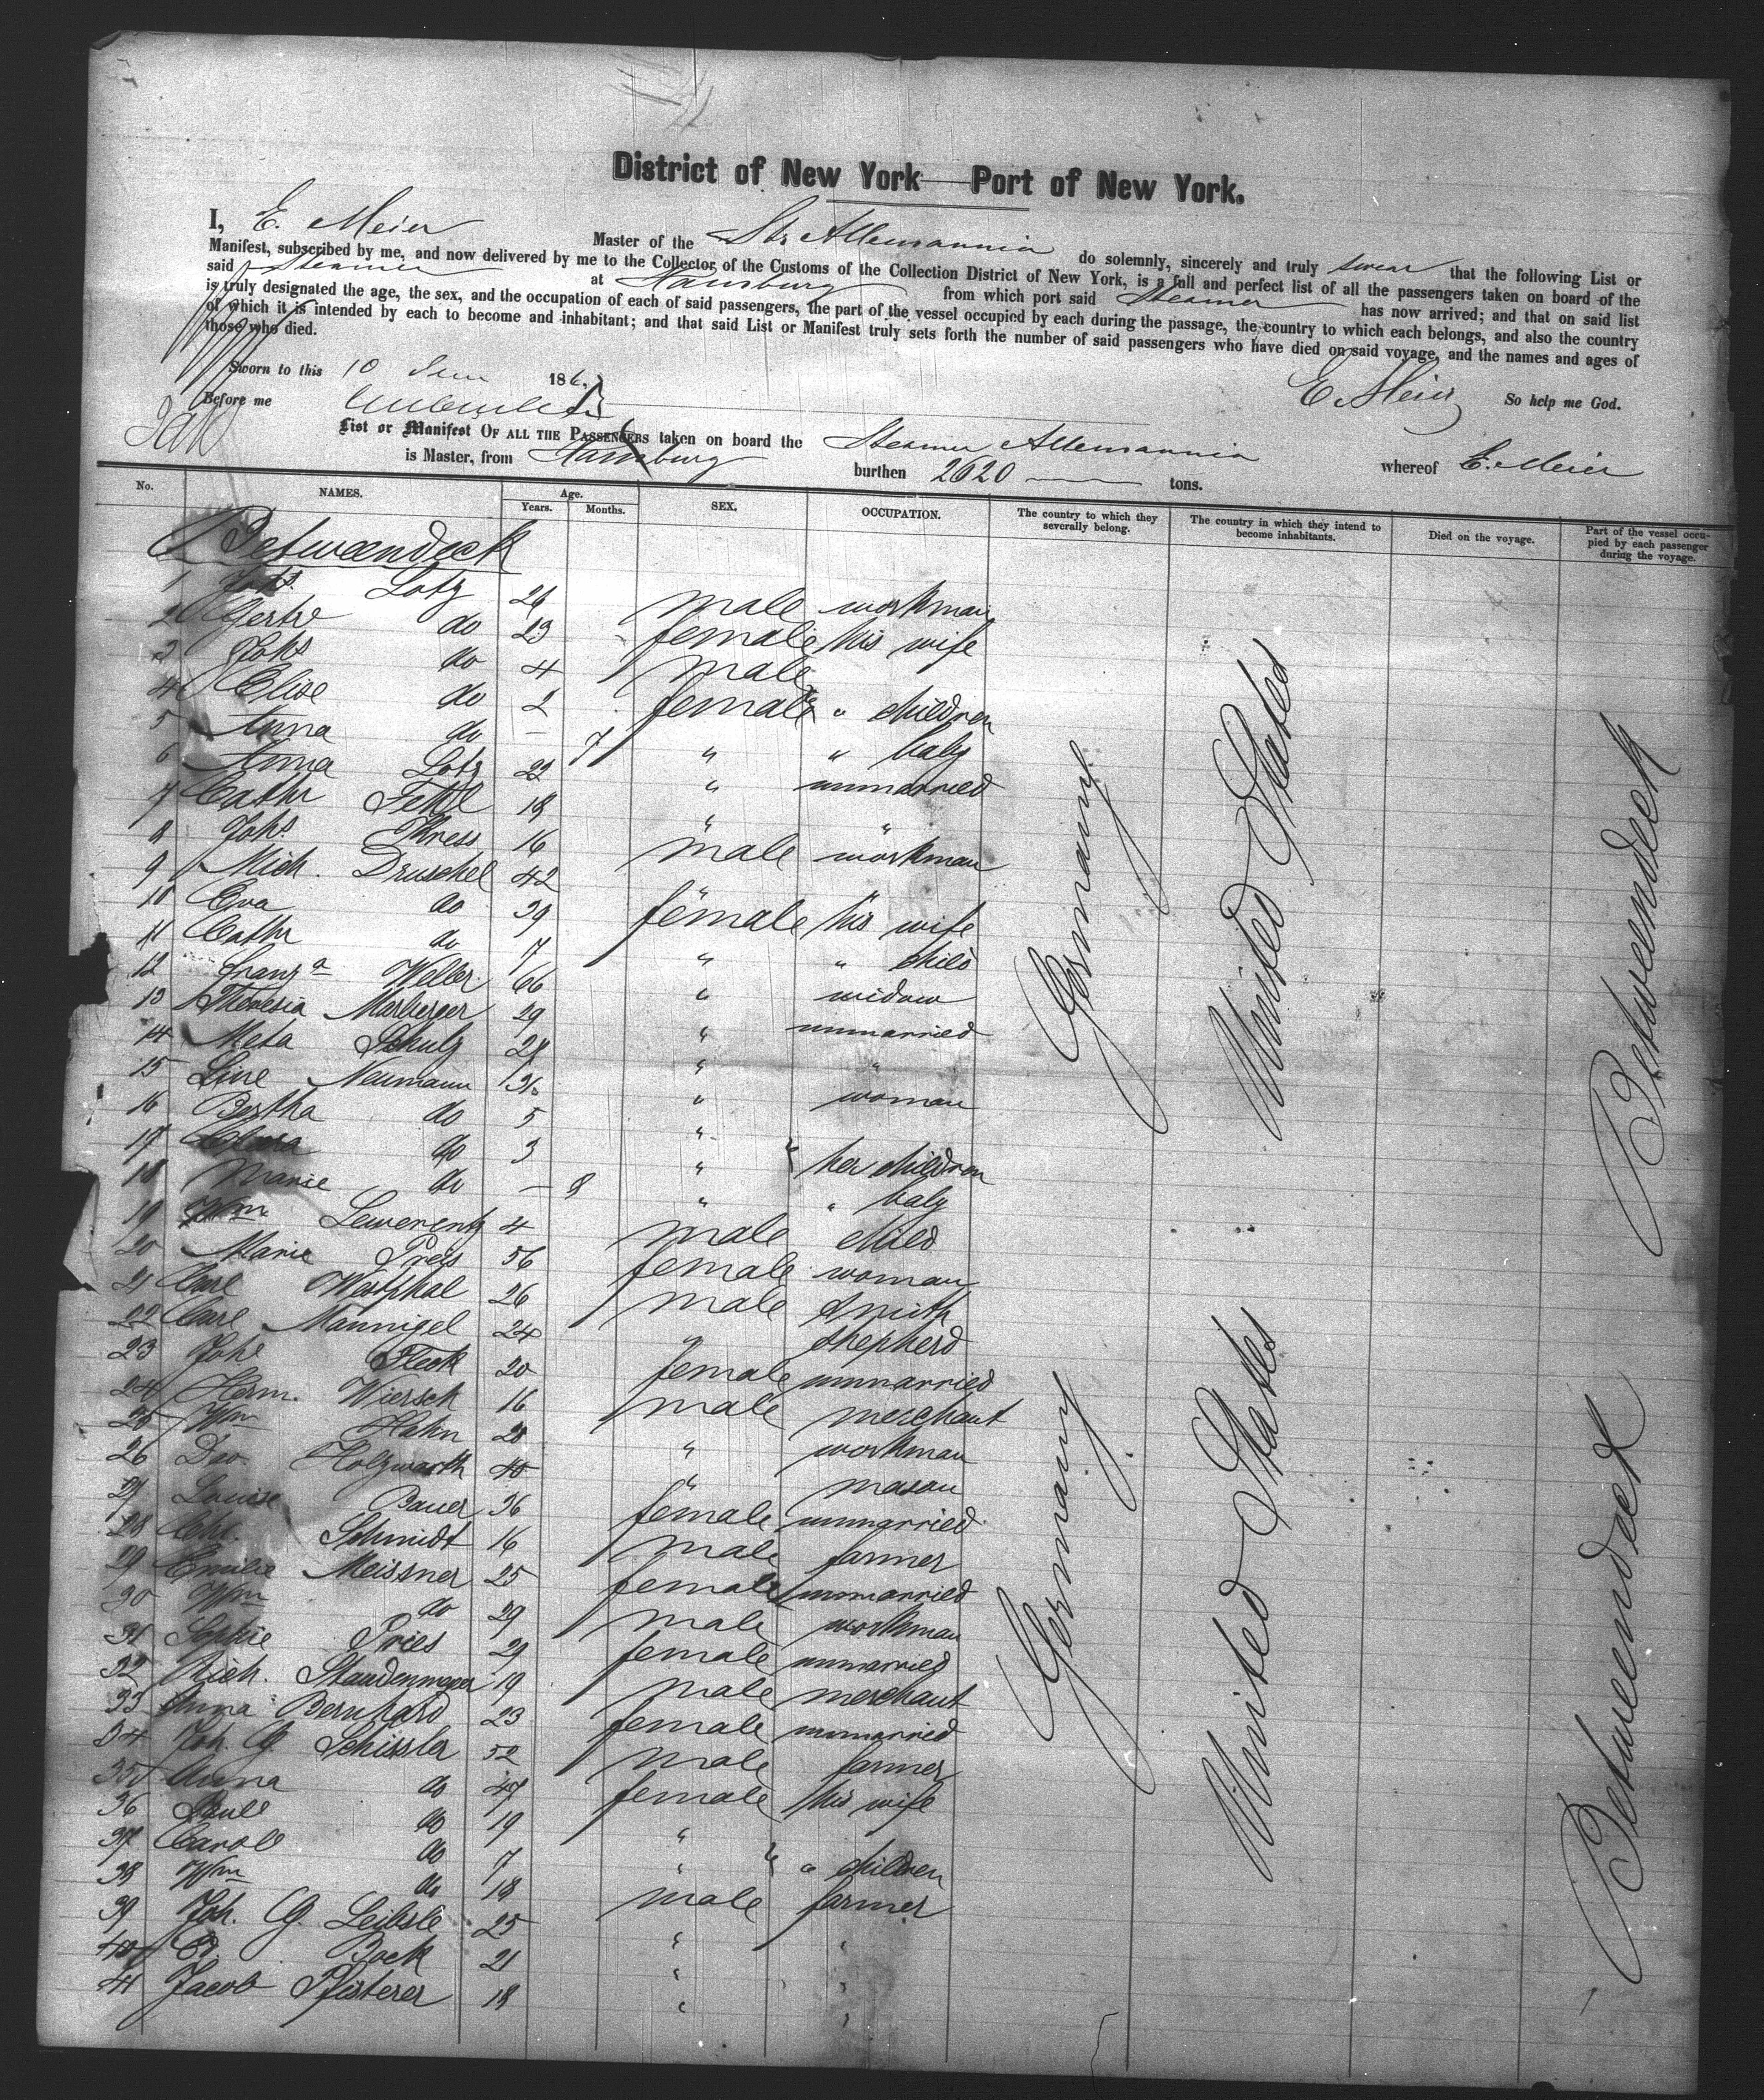 District of New York — Port of New York.
I, E. Meier Master of the Str Allemannia do solemnly, sincerely and truly swear that the following List or
Manifest, subscribed by me, and now delivered by me to the Collector of the Customs of the Collection District of New York, is a full and perfect list of all the passengers taken on board of the
said Steamer at Hamburg from which port said Steamer has now arrived; and that on said list
is truly designated the age, the sex, and the occupation of each of said passengers, the part of the vessel occupied by each during the passage, the country to which each belongs, and also the country
of which it is intended by each to become and inhabitant; and that said List or Manifest truly sets forth the number of said passengers who have died on said voyage, and the names and ages of
those who died.
Sworn to this 10 186
E. Meier So help me God.
Before me
List or Manifest OF ALL THE PASSENGERS taken on board the Steamer Allemannia whereof E. Meier
is Master, from Hamburg burthen 2620 tons.
No. NAMES. Age. Years. Months. SEX. OCCUPATION. The country to which they severally belong. The country in which they intend to become inhabitants. Died on the voyage. Part of the vessel occupied by each passenger during the voyage.
Betweendeck
1 Johs. Lotz 26 male workman
2 Gertr do 23 female his wife
3 Johs do 4 male
4 Elise do 2 female " children
5 Anna do - 7 " " baby
6 Anna Lotz 22 " unmarried
7 Cathr 18 " "
8 Johs. Kress 16 male workman
9 Mich. Druschel 42 " "
10 Eva do 39 female his wife
11 Cathr do 7 " " child
12 Franz a Weller 66 " widow
13 Theresia Marberger 29 " unmarried
14 Meta Schulz 28 " "
15 Line Neumann 31 " woman
16 Bertha do 5 "
17 do 3 " her children
18 Marie do - 8 " " baby
19 Wm Lewerentz 4 male child
20 Marie Preis 56 female woman
21 Carl Westphal 26 male smith
22 Carl Mannigel 24 " shepherd
23 Johe Fleck 20 female unmarried
24 Herm. Wiersch 16 male merchant
25 Wm Hahn 28 " workman
26 Dav. Holzwarth 40 " mason
27 Louise Bauer 36 female unmarried
28 Chr. Schmidt 16 male farmer
29 Emilie Meissner 25 female unmarried
30 Wm do 29 male workman
31 Sophie Pries 29 female unmarried
32 Rich. Staudenmeyer 19 male merchant
33 Anna Bernhard 23 female unmarried
34 Joh. G. Schissler 52 male farmer
35 Anna do 47 female his wife
36 Paule do 19 "
37 Carole do 7 " " children
38 Wm do 18 male farmer
39 Joh. G. Leibsle 25 " "
40 Ed. Bock 21 " "
41 Jacob Pfisterer 18 " "
Germany
United States
Betweendeck
Germany
United States
Betweendeck